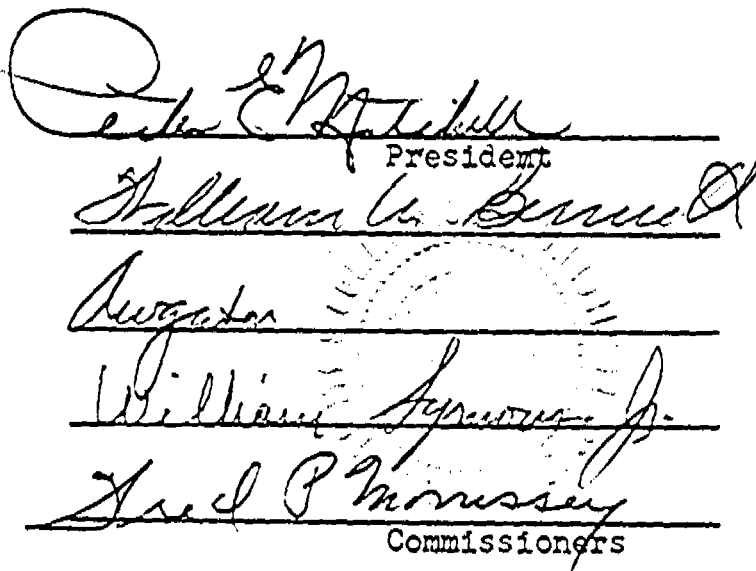 Peter E Mitchell
Presidemt
William M. Bennett
William Symons Jr.
Fred P Morrissey
Commissioners